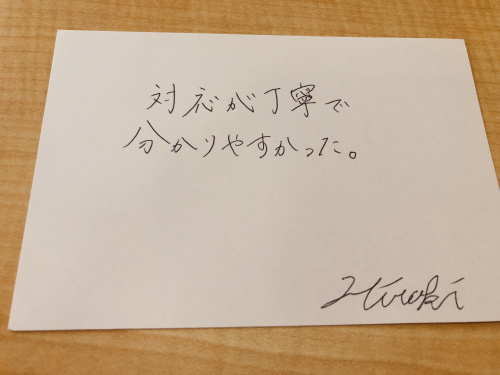 対応が丁寧で
分かりやすかった。
Hiroki